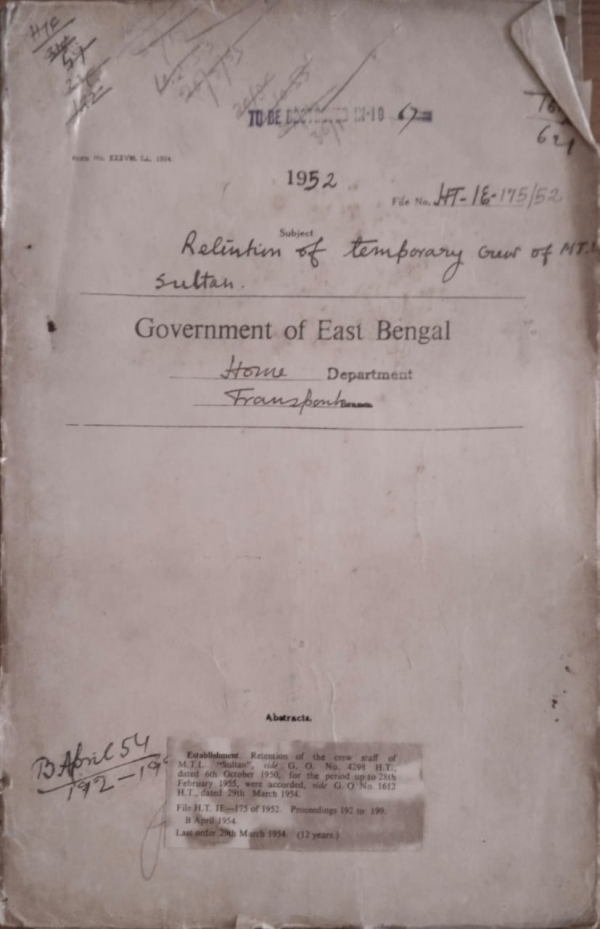 HTC
TO BE DESTROYED IN 19 67
621
Form No. XXXVIII.
1952
File No. HT-1E-175/52
Subject
Retention of temporary crew of M.T.
Sultan.
Government of East Bengal
Home Department
Transport Branch
Abstracts.
B April 54
192-19
Establishment. Retention of the crew staff of
M.T.L. "Sultan", vide G. O. No. 4298 H.T.,
dated 6th October 1950, for the period up to 28th
February 1955, were accorded, vide G. O. No. 1612
H.T., dated 29th March 1954.
File H.T. 1E—175 of 1952. Proceedings 192 to 199.
B April 1954.
Last order 29th March 1954. (12 years.)